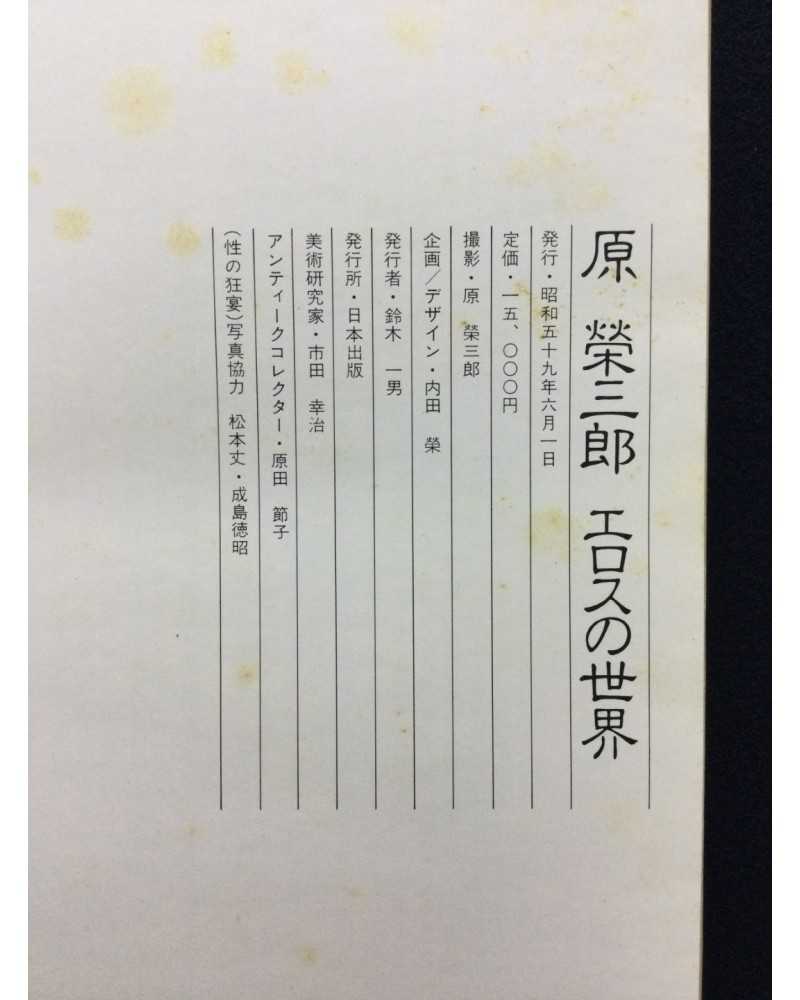 原 榮三郎 エロスの世界
発行・昭和五十九年六月一日
定価・一五、〇〇〇円
撮影・原 榮三郎
企画／デザイン・内田 榮
発行者・鈴木 一男
発行所・日本出版
美術研究家・市田 幸治
アンティークコレクター・原田 節子
(性の狂宴)写真協力 松本丈・成島徳昭